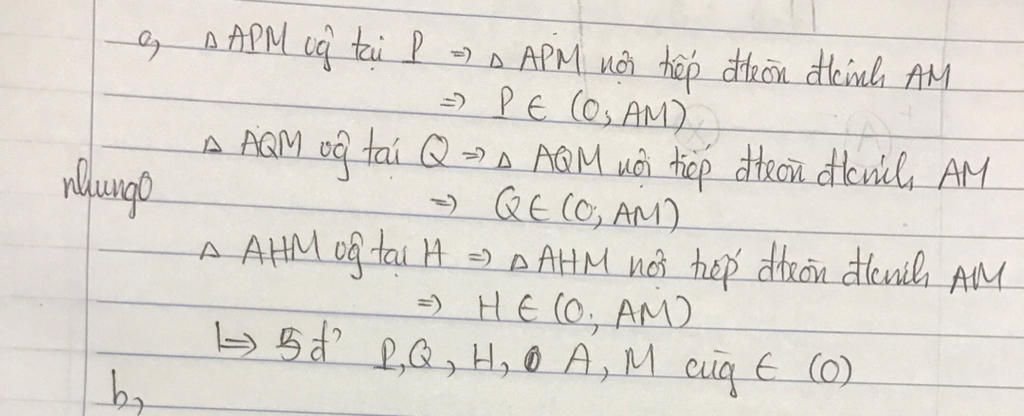 a, △APM vg̃ tại P => △ APM nội tiếp đtròn đkính AM
=> P ∈ (O; AM)
△ AQM vg̃ tại Q => △ AQM nội tiếp đtròn đkính AM
nhung
=> Q ∈ (O; AM)
△ AHM vg̃ tại H => △ AHM nội tiếp đtròn đkính AM
=> H ∈ (O; AM)
↦ 5 đ' P, Q, H, A, M cùg ∈ (O)
b,